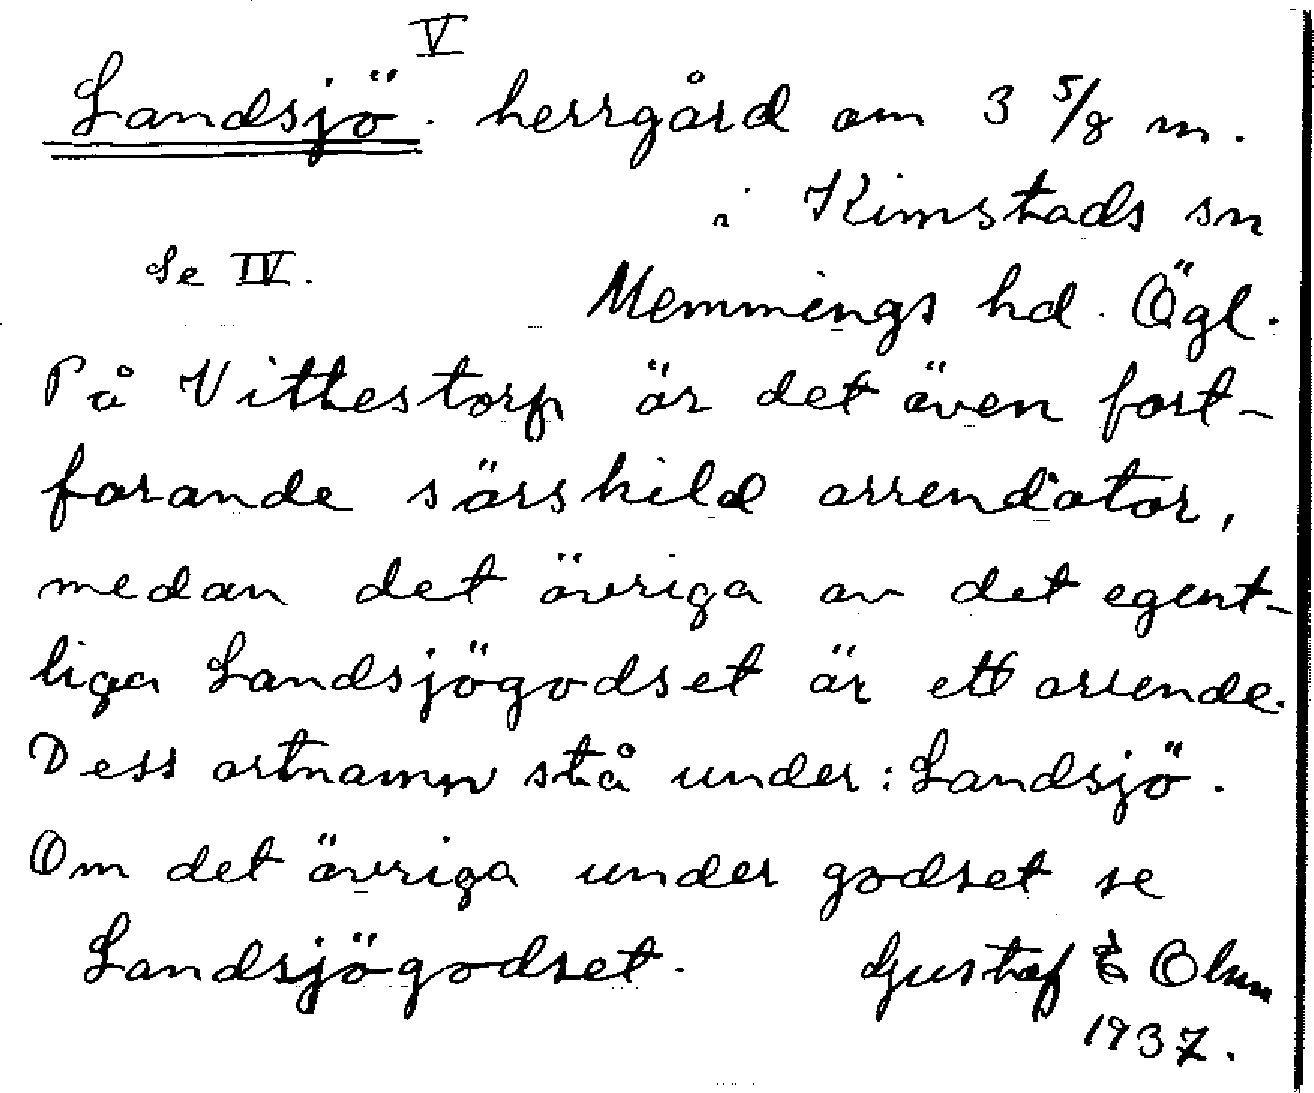 V
Landsjö. herrgård om 3 5/8 m.
i Kimstads sn
Se IV.
Memmings hd. Ögl.
På Vittestorp är det även fort-
farande särskild arrendator,
medan det övriga av det egent-
liga Landsjögodset är ett arrende.
Dess ortnamn stå under: Landsjö.
Om det övriga under godset se
Landsjögodset.
Gustaf E Olsson
1937.